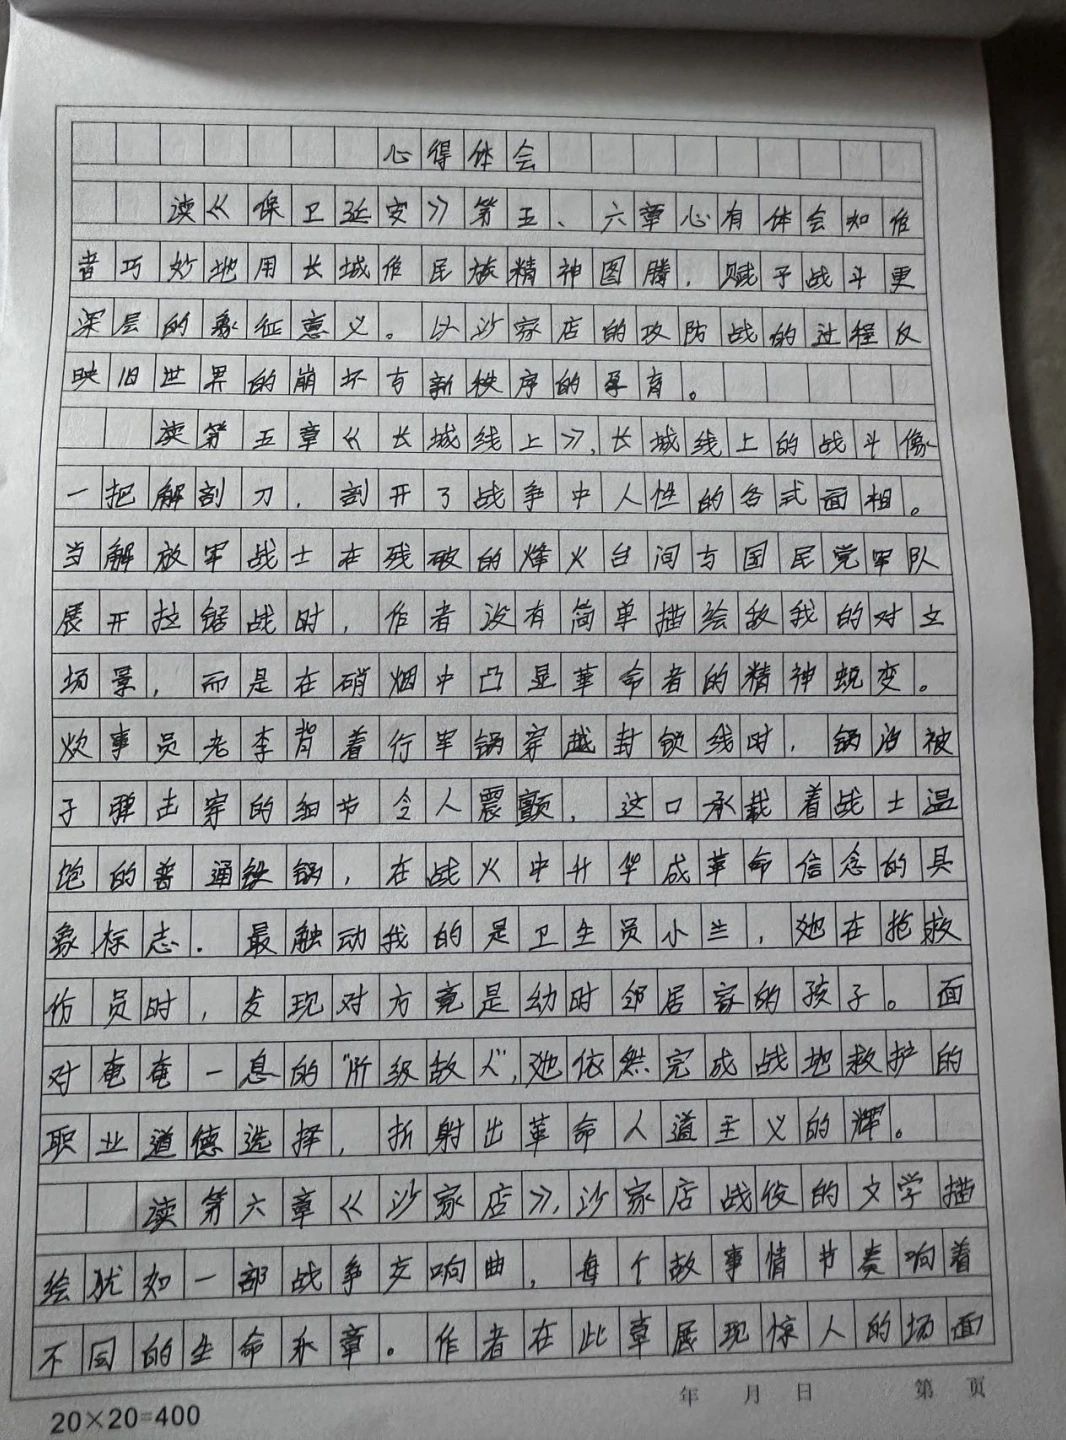 心得体会
读《保卫延安》第五、六章心有体会如作
者巧妙地用长城作民族精神图腾，赋予战斗更
深层的象征意义。以沙家店的攻防战的过程反
映旧世界的崩坏与新秩序的孕育。
读第五章《长城线上》，长城线上的战斗像
一把解剖刀，剖开了战争中人性的各式面相。
当解放军战士在残破的烽火台间与国民党军队
展开拉锯战时，作者没有简单描绘敌我的对立
场景，而是在硝烟中凸显革命者的精神蜕变。
炊事员老李背着行军锅穿越封锁线时，锅沿被
子弹击穿的细节令人震颤，这口承载着战士温
饱的普通铁锅，在战火中升华成革命信念的具
象标志．最触动我的是卫生员小兰，她在抢救
伤员时，发现对方竟是幼时邻居家的孩子。面
对奄奄一息的"阶级敌人"，她依然完成战地救护的
职业道德选择，折射出革命人道主义的辉。
读第六章《沙家店》，沙家店战役的文学描
绘犹如一部战争交响曲，每个故事情节奏响着
不同的生命乐章。作者在此章展现惊人的场面
年 月 日 第 页
20×20=400